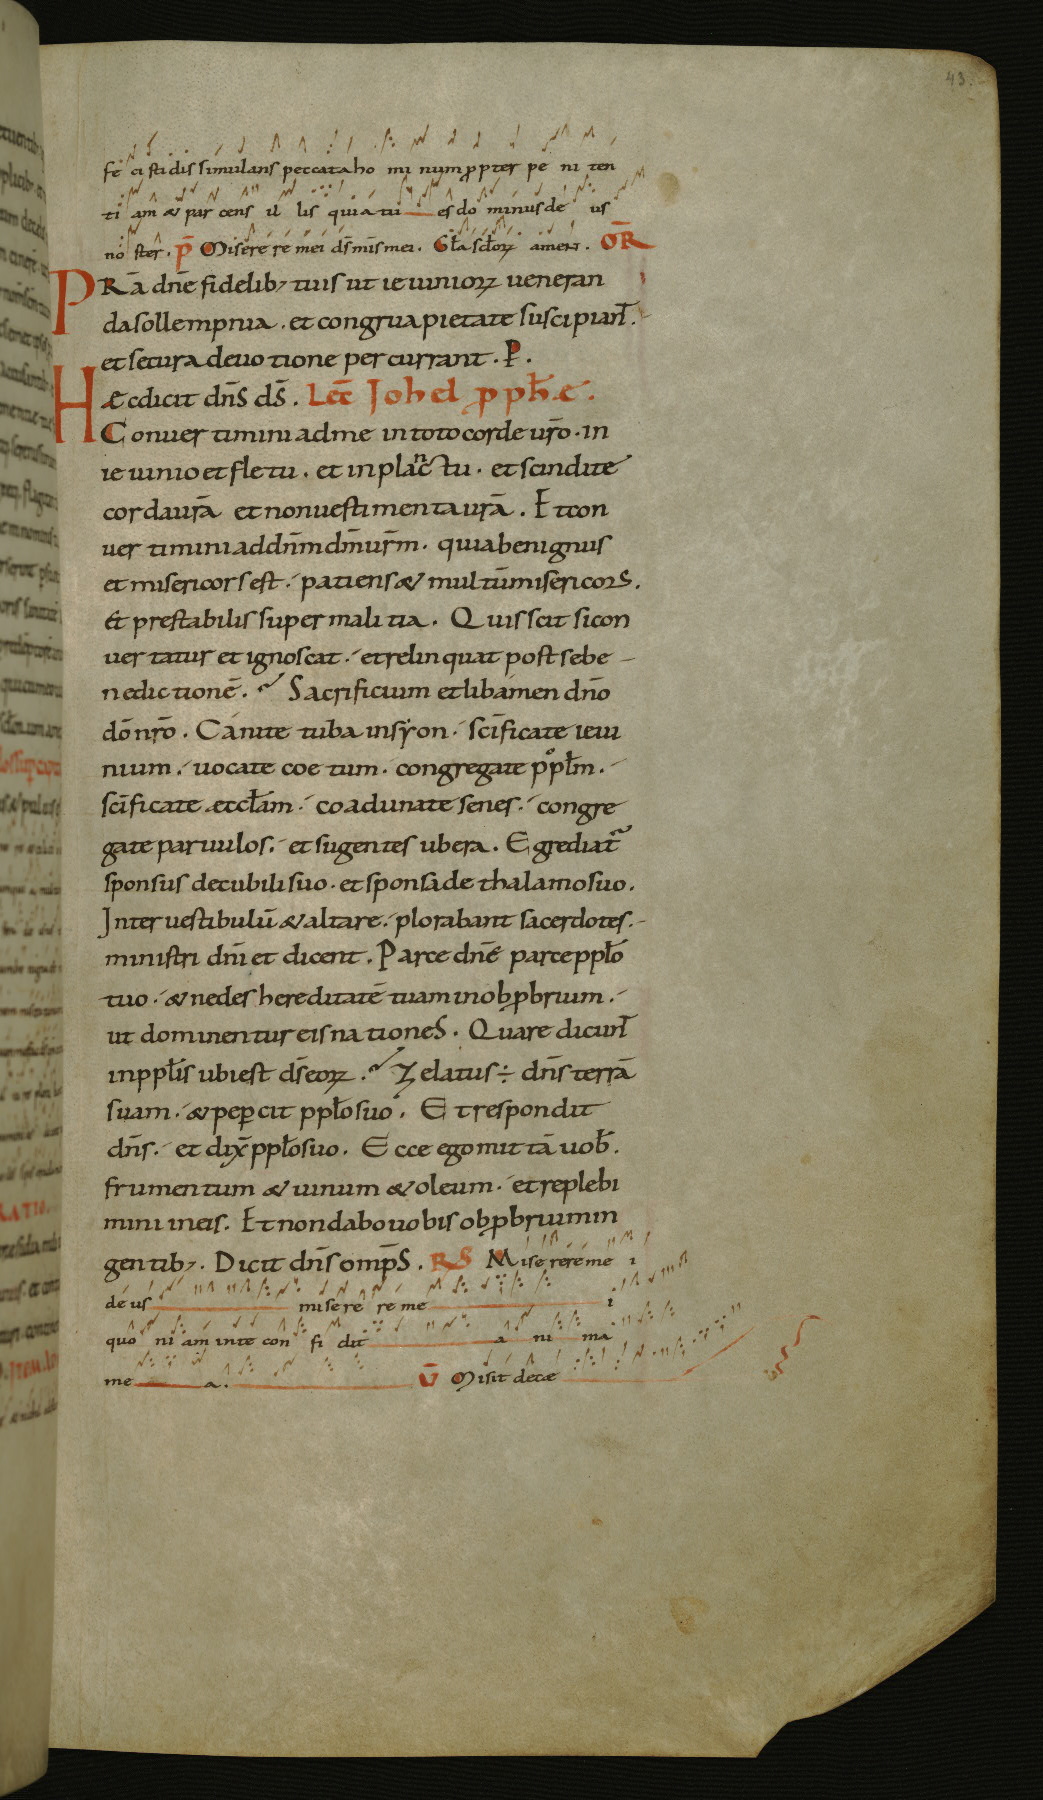 43.
fe ci sti dis simulans peccata ho mi num ꝓpter pe ni ten
ti am & par cens il lis quia tu es do minus de us
no ster. P̄ Miserere re mei ds̄ mīs mei. Gl̄a scl̄oꝝ amen. OR̄
PRā dn̄e fidelib; tuis ut ieiunioꝝ ueneran
da sollempnia. et congrua pietate suscipiant̄.
et secura deuotione percurrant. P̱.
Hæc dicit dn̄s ds̄. Lec̄ Johel ꝓph̄æ.
Conuertimini ad me in toto corde ur̄o. in
ieiunio et fletu. et in planctu. et scindite
corda ur̄a et non uestimenta ur̄a. Et con
uertimini ad dn̄m dm̄ ur̄m. quia benignus
et misericors est. patiens & multū misericors.
Et prestabilis super malitia. Quis scit si con
uertatur et ignoscat. et relinquat post se be
nedictionē. Sacrificium et libamen dn̄o
dō nr̄o. Canite tuba in syon. scīficate ieiu
nium. uocate coetum. congregate pop̄lm.
scīficate æccl̄am. coadunate senes. congre
gate paruulos. et sugentes ubera. Egrediat̄
sponsus de cubili suo. et sponsa de thalamo suo.
Inter uestibulū & altare. plorabant sacerdotes.
ministri dn̄i et dicent. Parce dn̄e parce ppl̄o
tuo. & ne des hereditatē tuam in obꝓbrium.
ut dominentur eis nationes. Quare dicunt̄
in ppl̄is ubi est ds̄ eoꝝ. Zelatus ÷ dn̄s terrā
suam. & peꝑcit ppl̄o suo. Et respondit
dn̄s. et dix̄ ppl̄o suo. Ecce ego mittā uob̄.
frumentum & uinum & oleum. et replebi
mini in eis. Et non dabo uobis obꝓbrium in
gentib;. Dicit dn̄s omp̄s. RS Miserere me i
de us misere re me i
quo ni am in te con fi dit a ni ma
me a. V̄ Misit de cæ